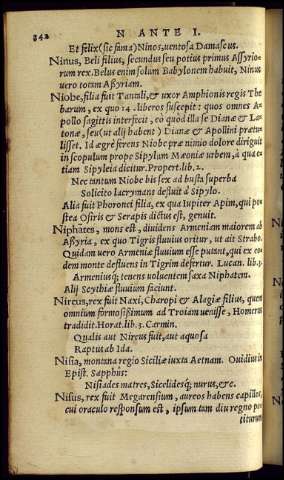 342 N ANTE I.
Et felix (sic fama) Ninos, uentosa Damascus.
Ninus, Beli filius, secundus seu potius primus Assyrio-
rum rex. Belus enim solum Babylonem habuit, Ninus
uero totam Assyriam.
Niobe, filia fuit Tantali, & uxor Amphionis regis The
barum, ex quo 14. liberos suscepit: quos omnes A-
pollo sagittis interfecit, eo quòd illa se Dianæ & La-
tonæ, seu (ut alij habent) Dianæ & Apollini prætu-
lisset. Id ægrè ferens Niobe præ nimio dolore diriguit
in scopulum prope Sipylum Mæoniæ urbem, à qua e-
tiam Sipyleia dicitur. Propert. lib. 2.
Nec tantum Niobe bis sex ad busta superba
Solicito lacrymans defluit à Sipylo.
Alia fuit Phoronei filia, ex qua Iupiter Apim, qui po-
stea Osiris & Serapis dictus est, genuit.
Niphates, mons est, diuidens Armeniam maiorem ab
Assyria, ex quo Tigris fluuius oritur, ut ait Strabo.
Quidam uero Armeniæ fluuium esse putant, qui ex eo-
dem monte defluens in Tigrim defertur. Lucan. lib. 3.
Armeniusq; tenens uoluentem saxa Niphaten.
Alij Scythiæ fluuium faciunt.
Nireus, rex fuit Naxi, Charopi & Alagiæ filius, quem
omnium formosissimum ad Troiam uenisse, Homerus
tradidit. Horat. lib. 3. Carmin.
Qualis aut Nireus fuit, aut aquosa
Raptus ab Ida.
Nisia, montana regio Siciliæ iuxta Aetnam. Ouidius in
Epist. Sapphus:
Nisiades matres, Sicelidesq; nurus, &c.
Nisus, rex fuit Megarensium, aureos habens capillos,
cui oraculo responsum est, ipsum tam diu regno po-
titurum